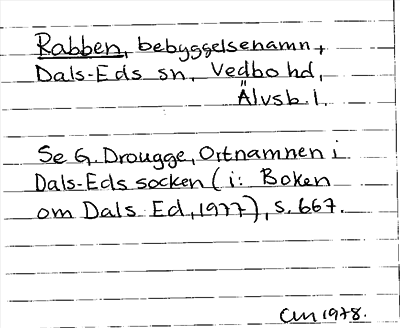 Rabben, bebyggelsenamn,
Dals-Eds sn, Vedbo hd,
Älvsb. l.
Se G. Drougge, Ortnamnen i
Dals-Eds socken (i: Boken
om Dals Ed, 1977), s. 667.
CM 1978.